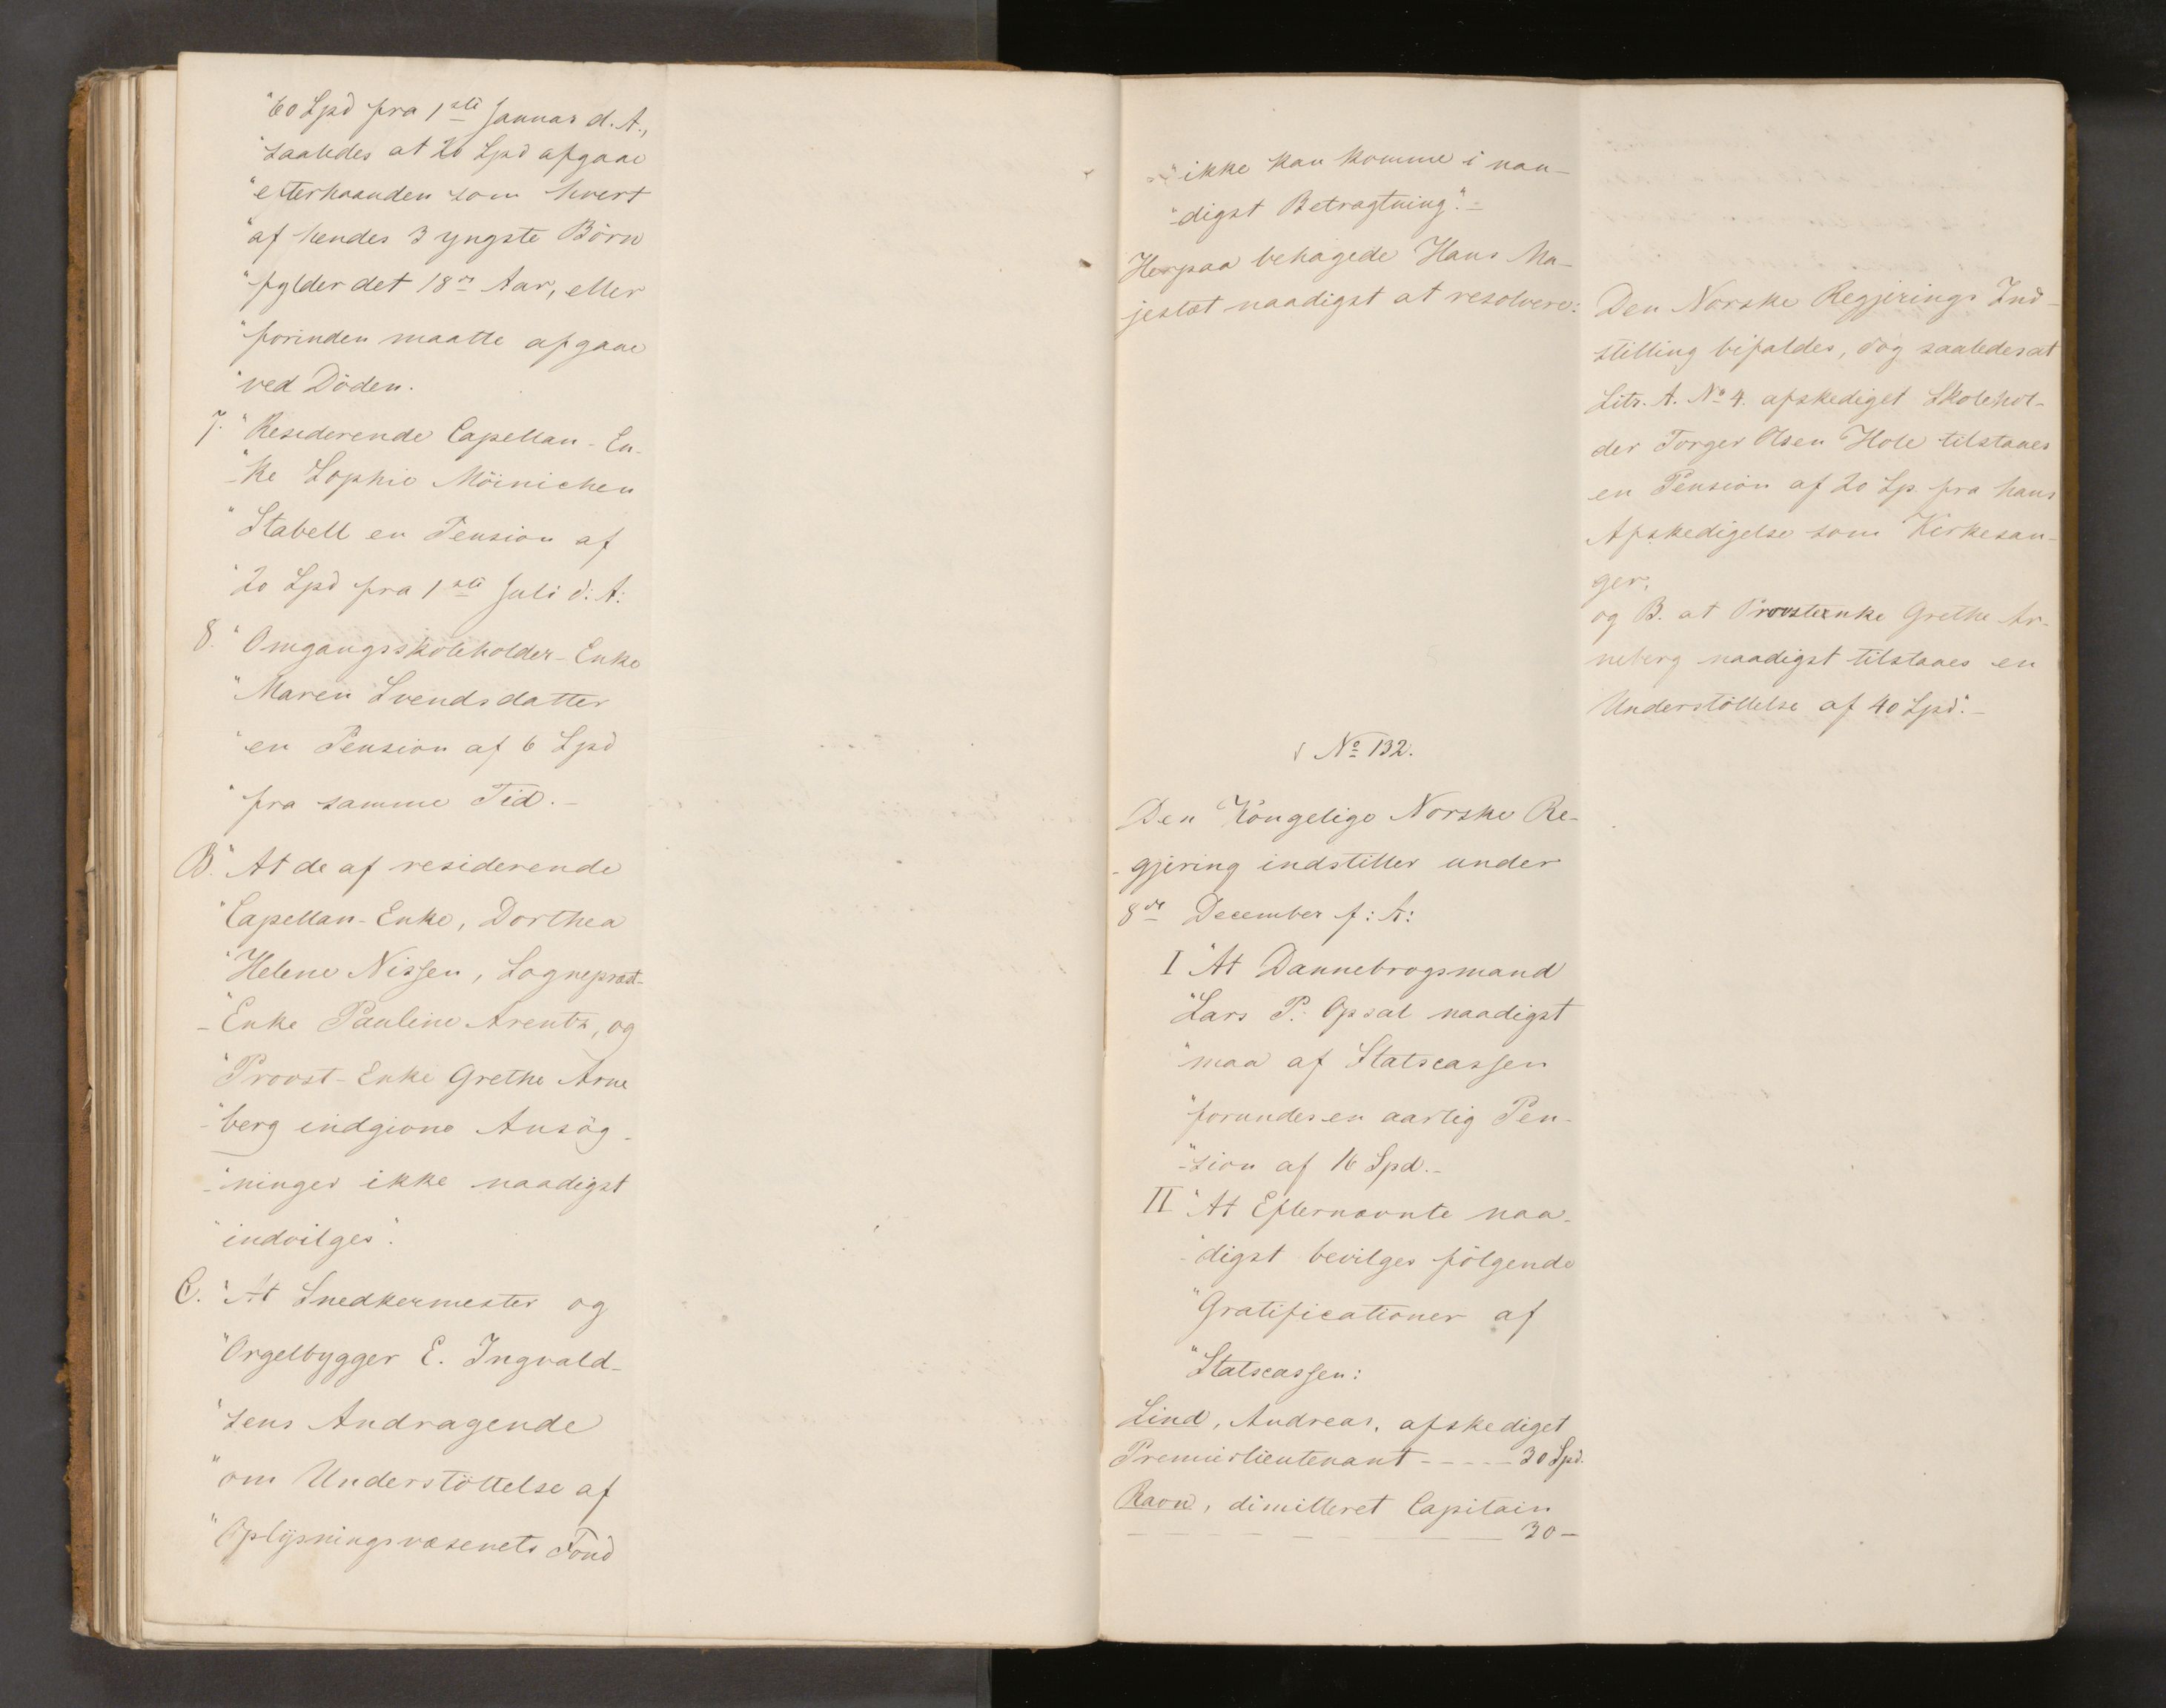 "60 Spd fra 1ste Januar d. A.,
"saaledes at 20 Spd afgaae
"efterhaanden som hvert
"af hendes 3 yngste Börn
"fylder det 18de Aar, eller
"forinden maatte afgaae
"ved Döden.
7. "Residerende Capellan-En-
"-ke Sophie Möinichen
"Stabell en Pension af
"20 Spd fra 1ste Juli d: A:
8. "Omgangsskoleholder-Enke
"Maren Svendsdatter
"en Pension af 6 Spd
"fra samme Tid.-
B. "At de af residerende
"Capellan-Enke, Dorthea
"Helene Nissen, Sognepræst-
"-Enke Pauline Arentz, og
"Provst-Enke Grethe Arne
"-berg indgivne Ansög-
"-ninger ikke naadigst
"indvilges".
C. "At Snedkermester og
"Orgelbygger E. Ingvald-
"sens Andragende
"om Understöttelse af
"Oplysningsvæsenets Fond
"ikke kan komme i naa-
"-digst Betragtning".-
Herpaa behagede Hans Ma-
jestæt naadigst at resolvere:
Den Norske Regjerings Ind-
stilling bifaldes, dog saaledes at
Litr. A. No 4. afskediget Skolehol-
der Torger Olsen Hole tilstaaes
en Pension af 20 Sp. fra hans
Afskedigelse som Kirkesan-
ger,
og B. at Provsteenke Grethe Ar-
neberg naadigst tilstaaes en
Understöttelse af 40 Spd".-
No 132.
Den Kongelige Norske Re-
-gjering indstiller under
8de December f: A:
I "At Dannebrogsmand
"Lars P. Opsal naadigst
"maa af Statscassen
"forundes en aarlig Pen-
"-sion af 16 Spd.-
II "At Efternævnte naa-
"digst bevilges fölgende
"Gratificationer af
"Statscassen:
Lind, Andreas, afskediget
Premierlieutenant - - - - - 30 Spd.
Ravn, dimitteret Capitain
- - - - - - 30 -